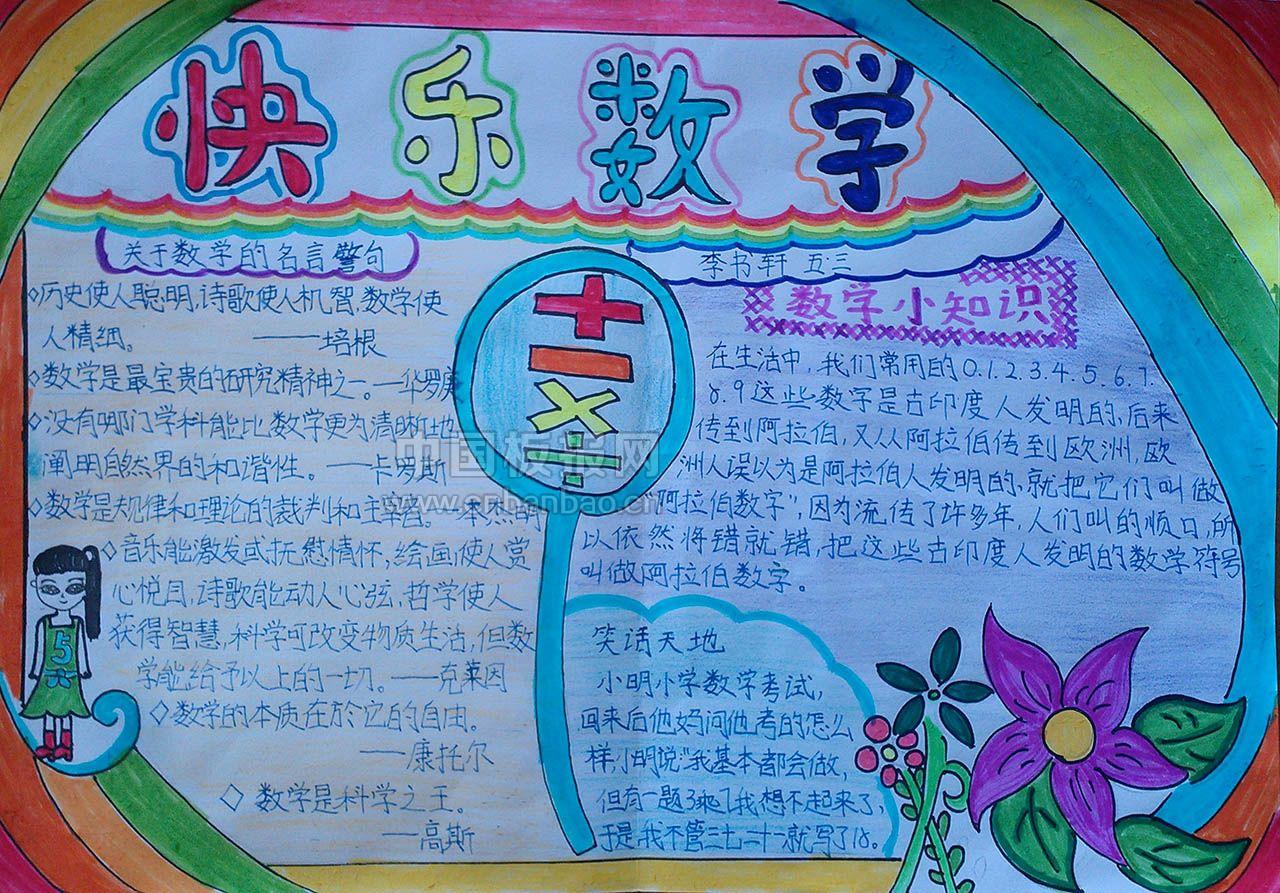 快乐数学
关于数学的名言警句
◇历史使人聪明,诗歌使人机智,数学使
人精细。 ——培根
◇数学是最宝贵的研究精神之一。—华罗庚
◇没有哪门学科能比数学更为清晰地
阐明自然界的和谐性。—卡罗斯
◇数学是规律和理论的裁判和主宰者。—本杰明
◇音乐能激发或抚慰情怀,绘画使人赏
心悦目,诗歌能动人心弦,哲学使人
获得智慧,科学可改变物质生活,但数
学能给予以上的一切。—克莱因
◇数学的本质在於它的自由。
—康托尔
◇ 数学是科学之王。
—高斯
+
−
×
÷
5
李书轩 五三
数学小知识
在生活中,我们常用的0.1.2.3.4.5.6.7.
8.9这些数字是古印度人发明的,后来
传到阿拉伯,又从阿拉伯传到欧洲,欧
洲人误以为是阿拉伯人发明的,就把它们叫做
“阿拉伯数字”,因为流传了许多年,人们叫的顺口,所
以依然将错就错,把这些古印度人发明的数学符号
叫做阿拉伯数字。
笑话天地
小明小学数学考试,
回来后他妈问他考的怎么
样,小明说“我基本都会做,
但有一题3乘7我想不起来了,
于是我不管三七二十一就写了18。
中国板报网
www.cnbanbao.cn